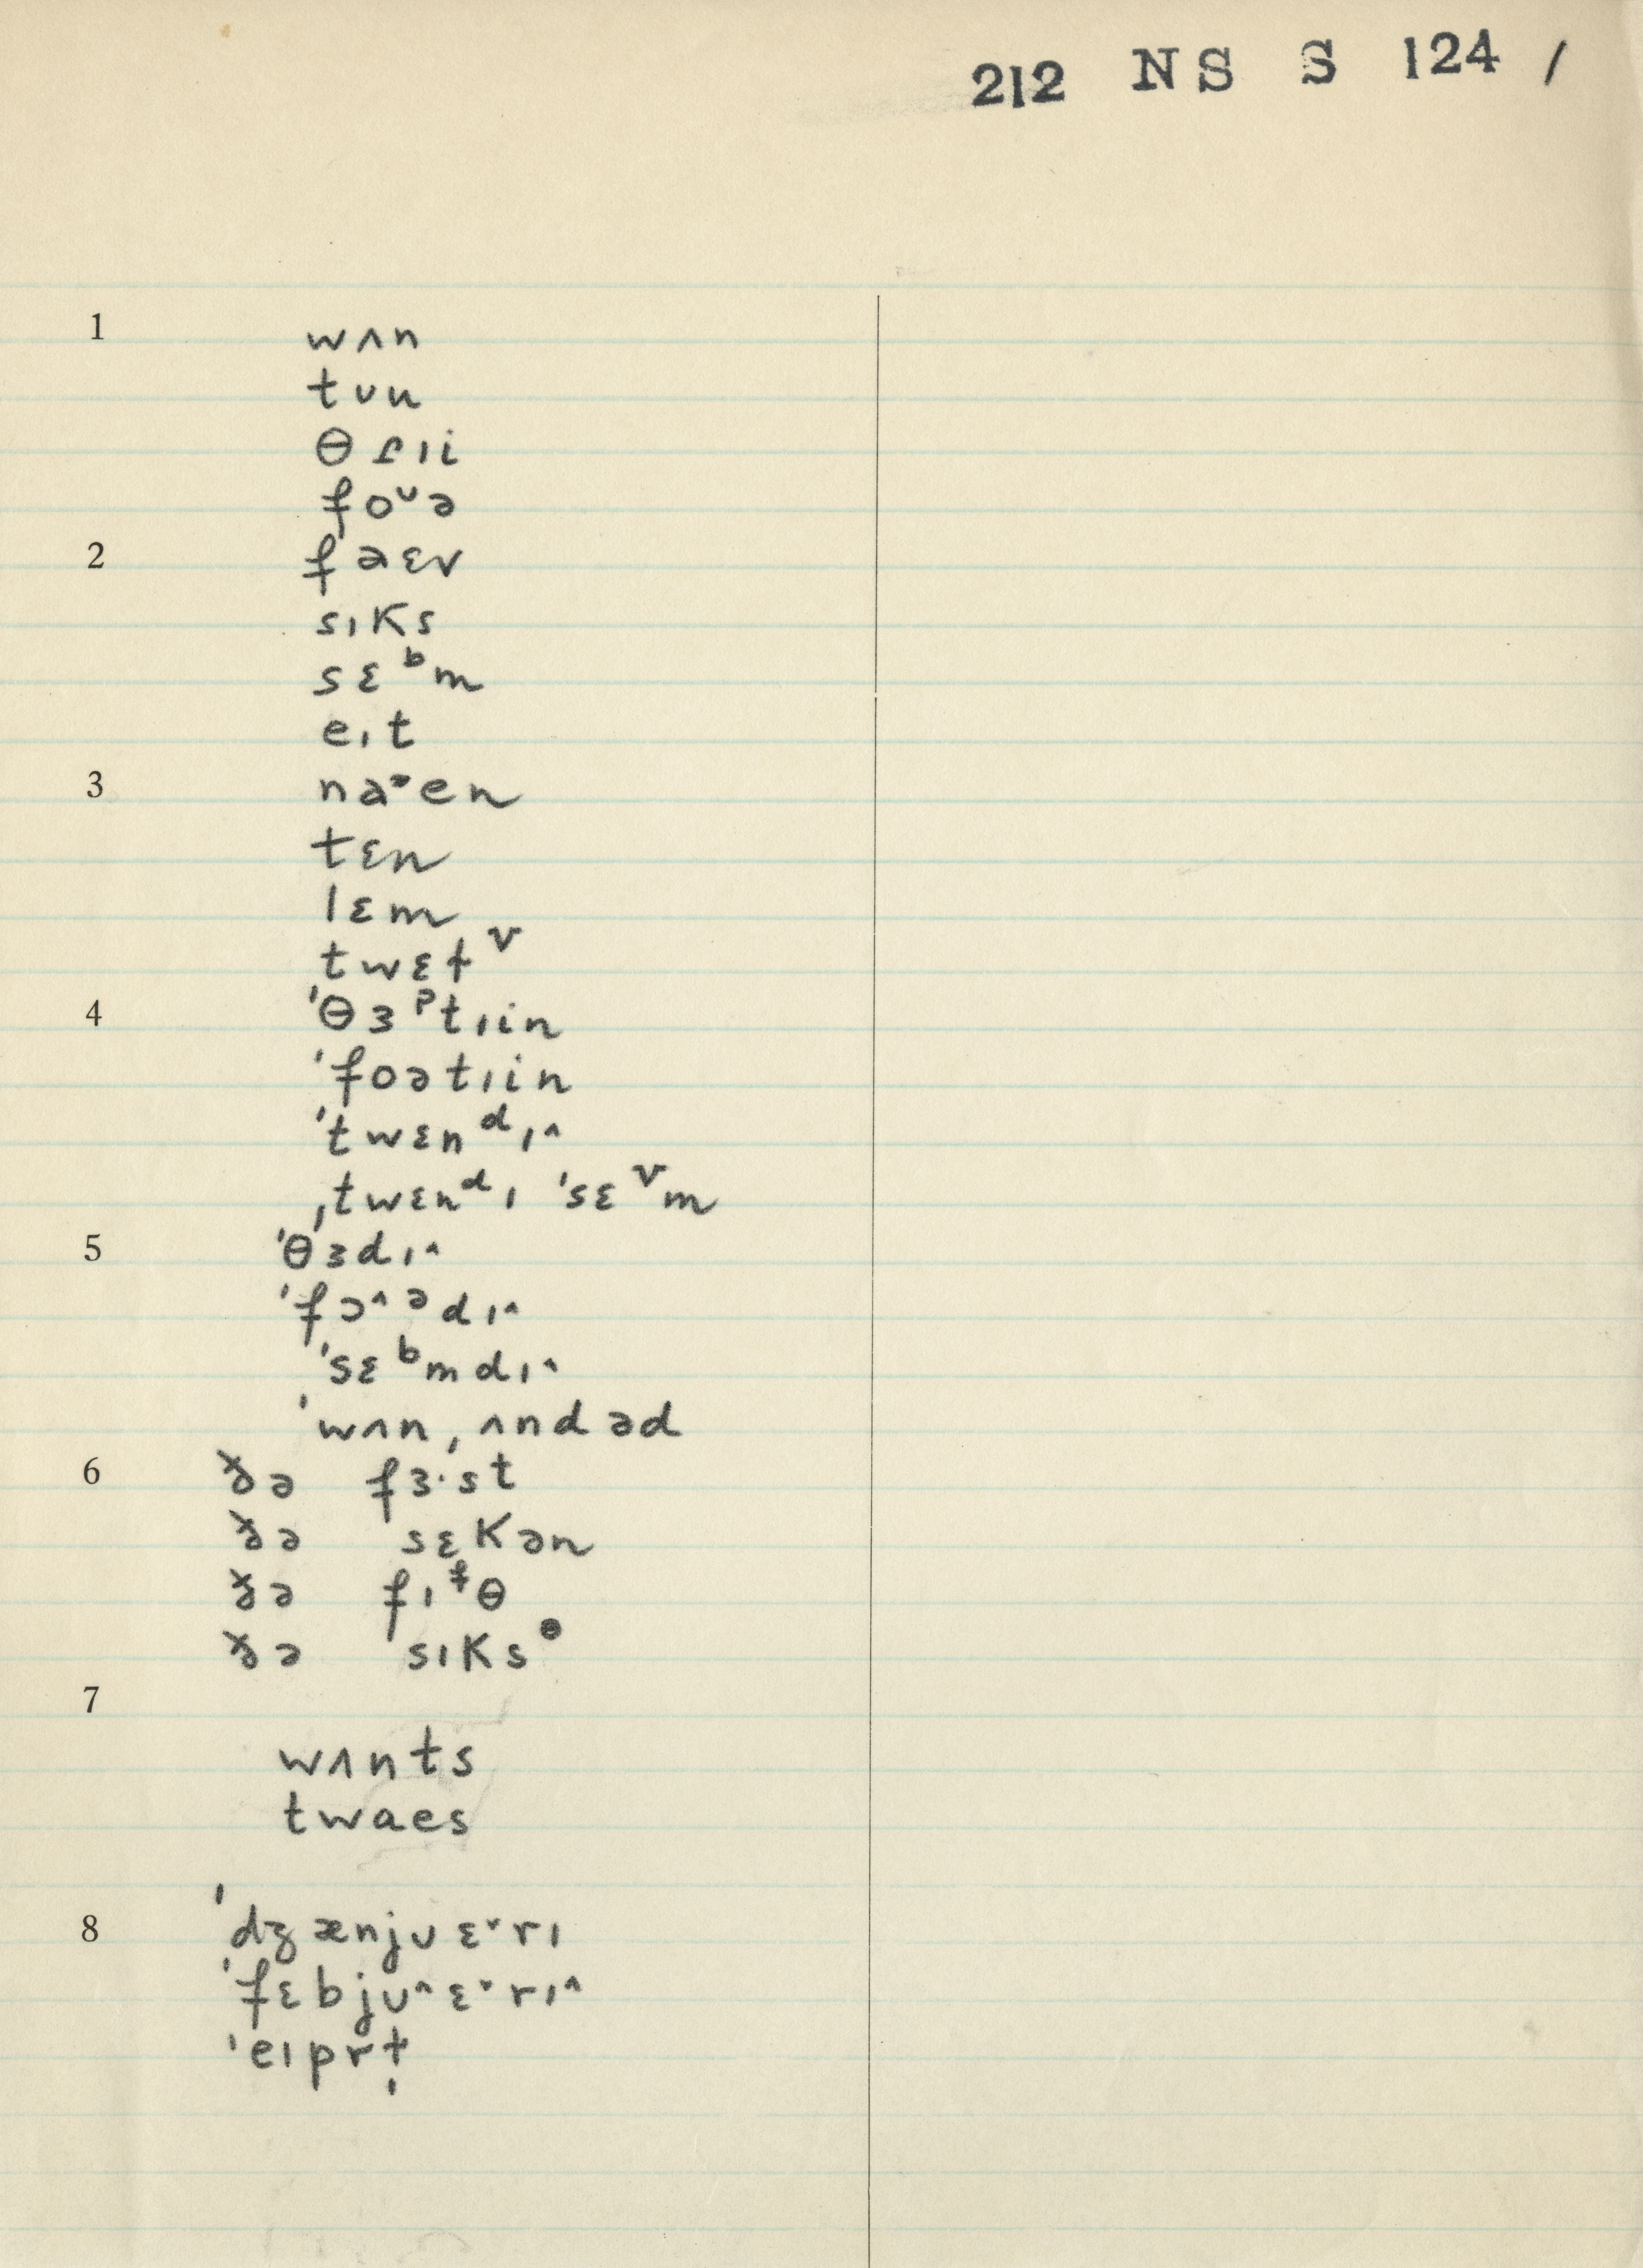 212 NS S 124 /
1 wʌn
tʊu
θɾɪi
foᶷə
2 faɛv
sɪks
sɛᵇm
eɪt
3 na˃en
tɛn
lɛm
twɛɫᵛ
4 ˈθɜᵖtɪin
ˈfoətɪin
ˈtwɛnᵈɪ˄
ˌtwɛnᵈɪ ˈsɛᵛm
5 ˈθɜdɪ˄
ˈfɔ˄ᵊdɪ˄
ˈsɛᵇmdɪ˄
ˈwʌn ˌʌndəd
6 ðə fɜ·st
ðə sɛkən
ðə fɪᶠθ
ðə sɪksᶿ
7
wʌnts
twaes
8 ˈdʒænjʊɛ˅rɪ
ˈfɛbjʊ˄ɛ˅rɪ˄
ˈeɪprɫ̩